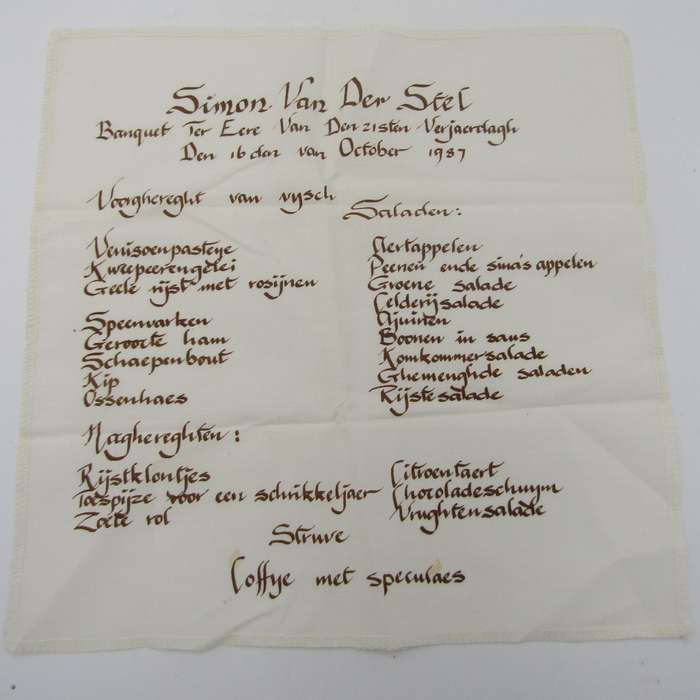 Simon Van Der Stel
Banquet Ter Eere Van Den 21sten Verjaerdagh
Den 16 den van October 1987
Voorghereght van vysch
Venisoenpasteye
Kweepeerengelei
Geele rijst met rosijnen
Speenvarken
Geroocte ham
Schaepenbout
Kip
Ossenhaes
Saladen:
Aertappelen
Peenen ende sina's appelen
Groene salade
Celderijsalade
Ajuinen
Boonen in saus
Komkommersalade
Ghemenghde saladen
Rijstesalade
Naghereghten:
Rijstklontjes
Toespijze voor een schrikkeljaer
Zoete rol
Citroentaert
Chocoladeschuym
Vrughtensalade
Struve
Coffye met speculaes